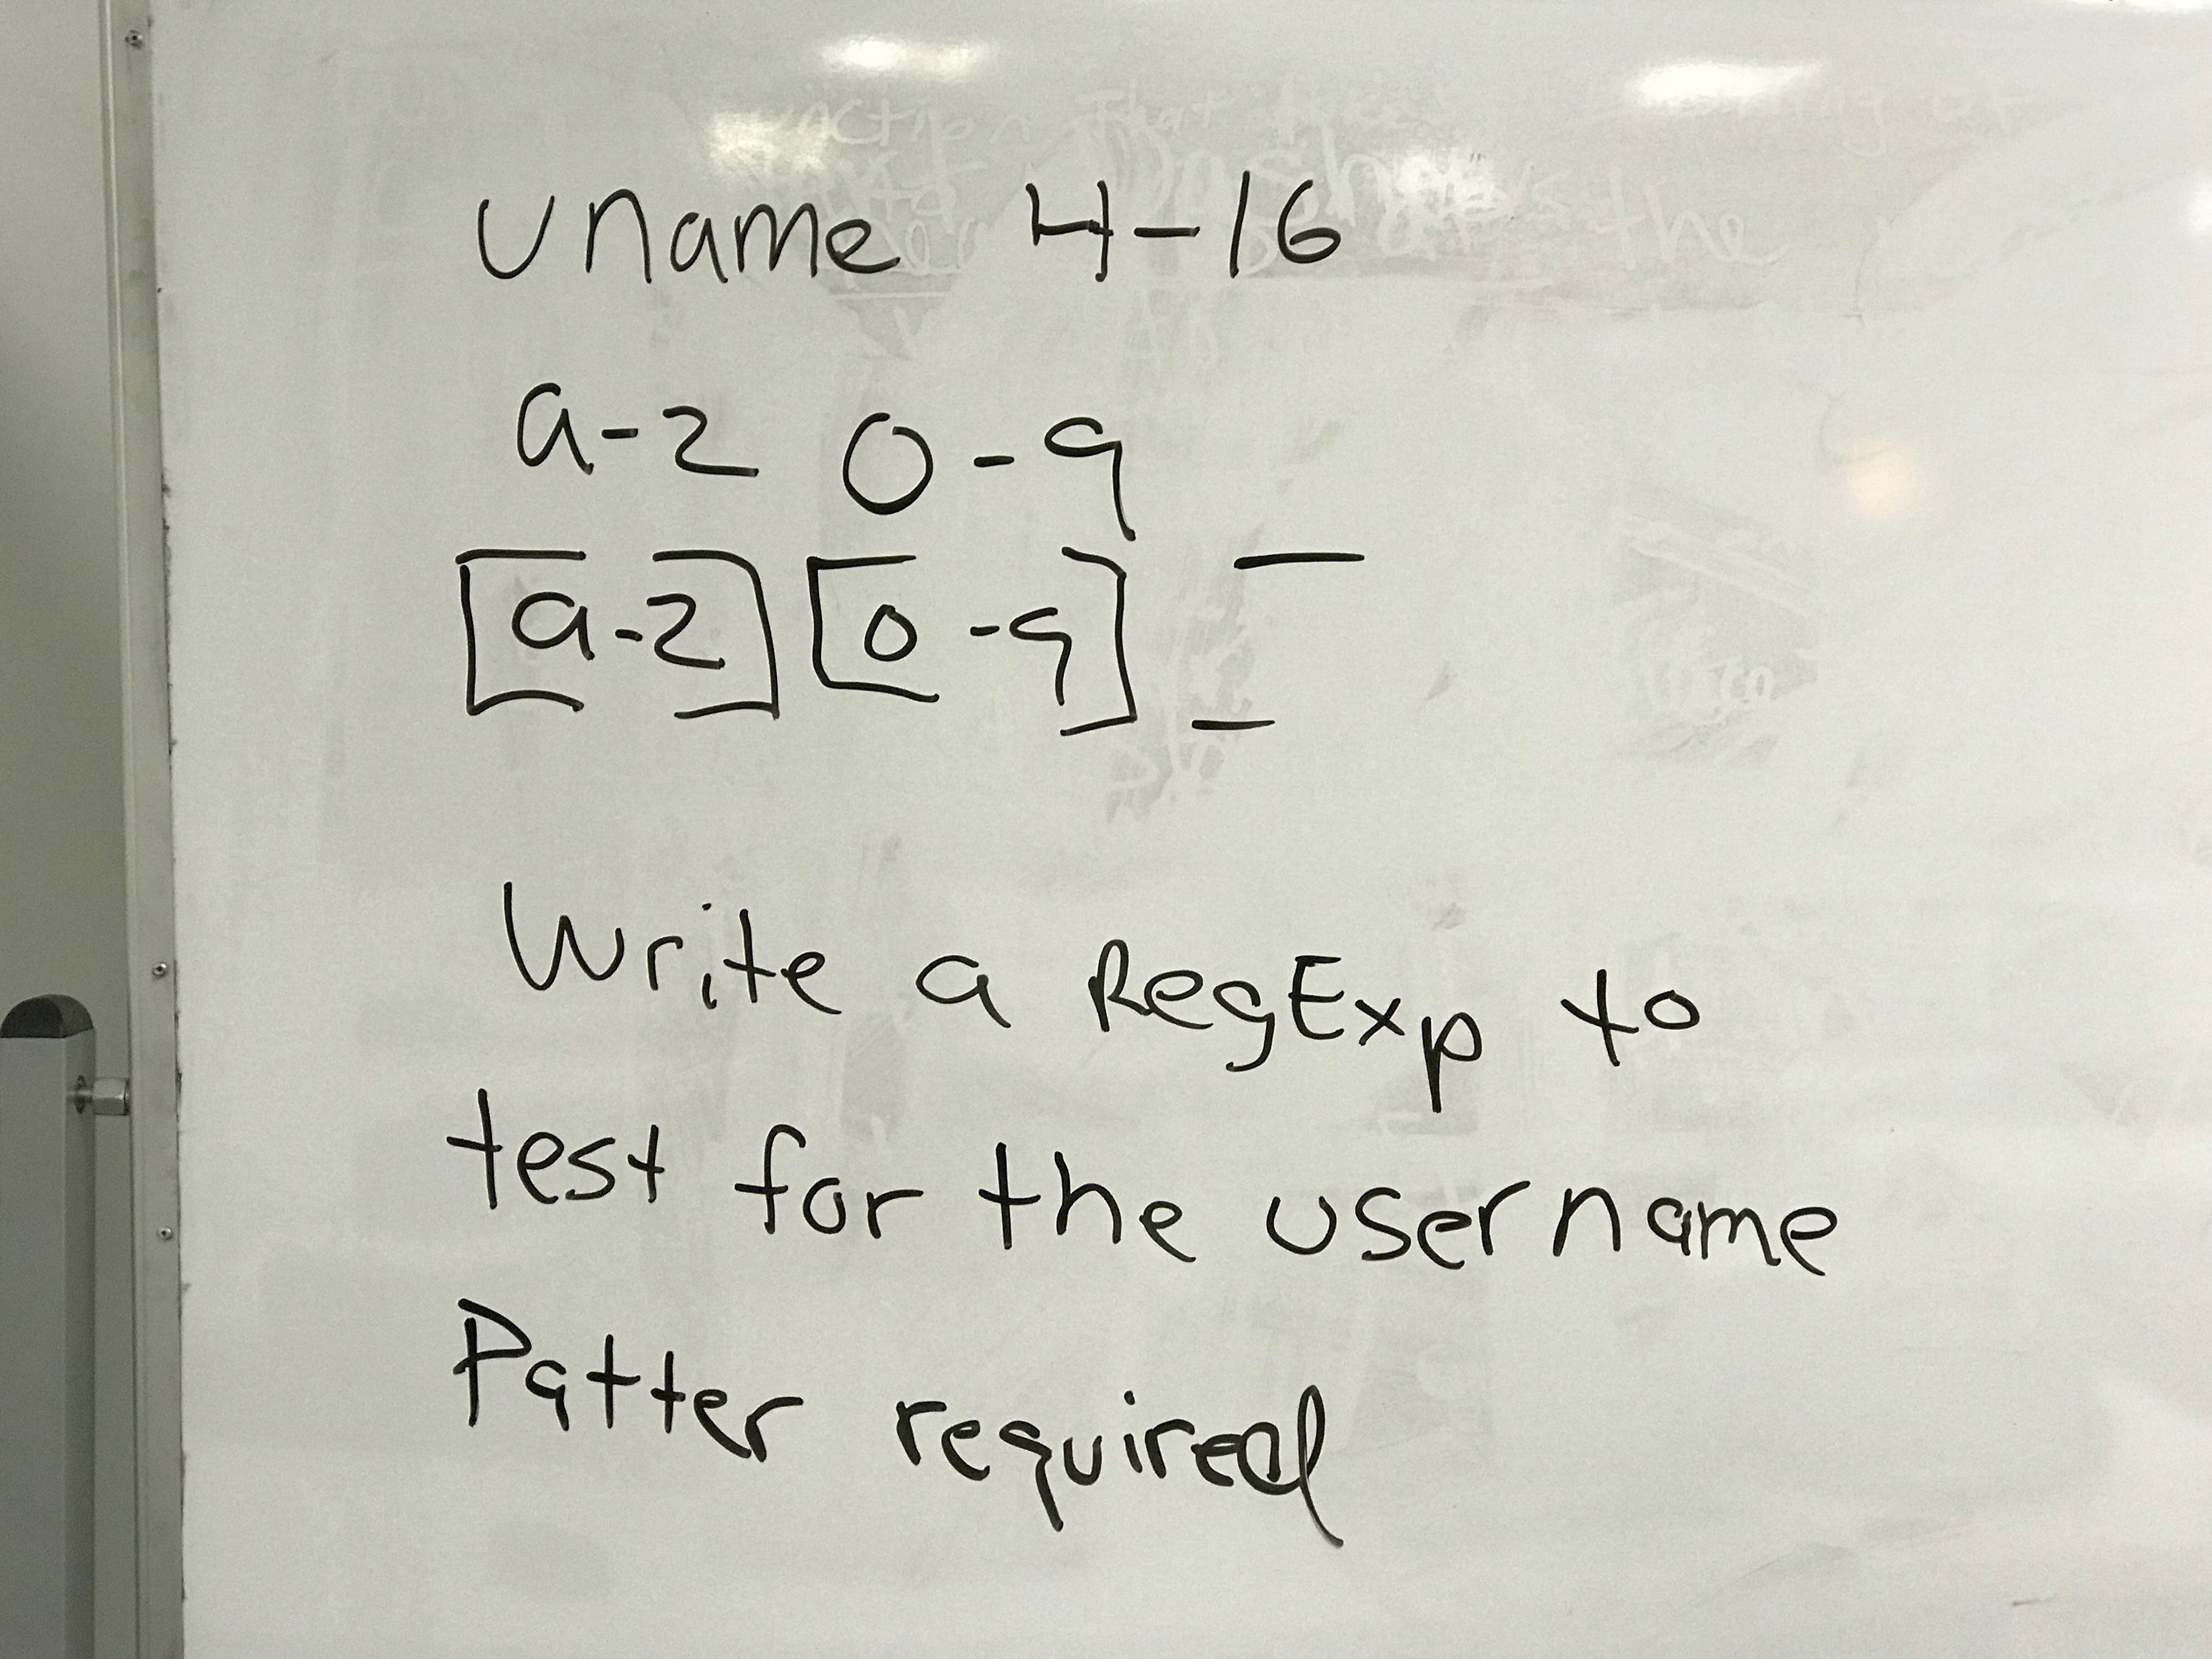 uname 4-16
a-z 0-9
[a-z] [0-9] _ —
Write a RegExp to
test for the username
Patter required